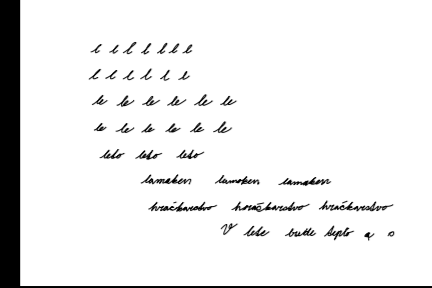 l l l l l l l
l l l l l l
le le le le le le
le le le le le le
leto leto leto
lamaken lamoken lamaken
hračkarstvo horačkarstvo hračkarstvo
V lete bude teplo a o